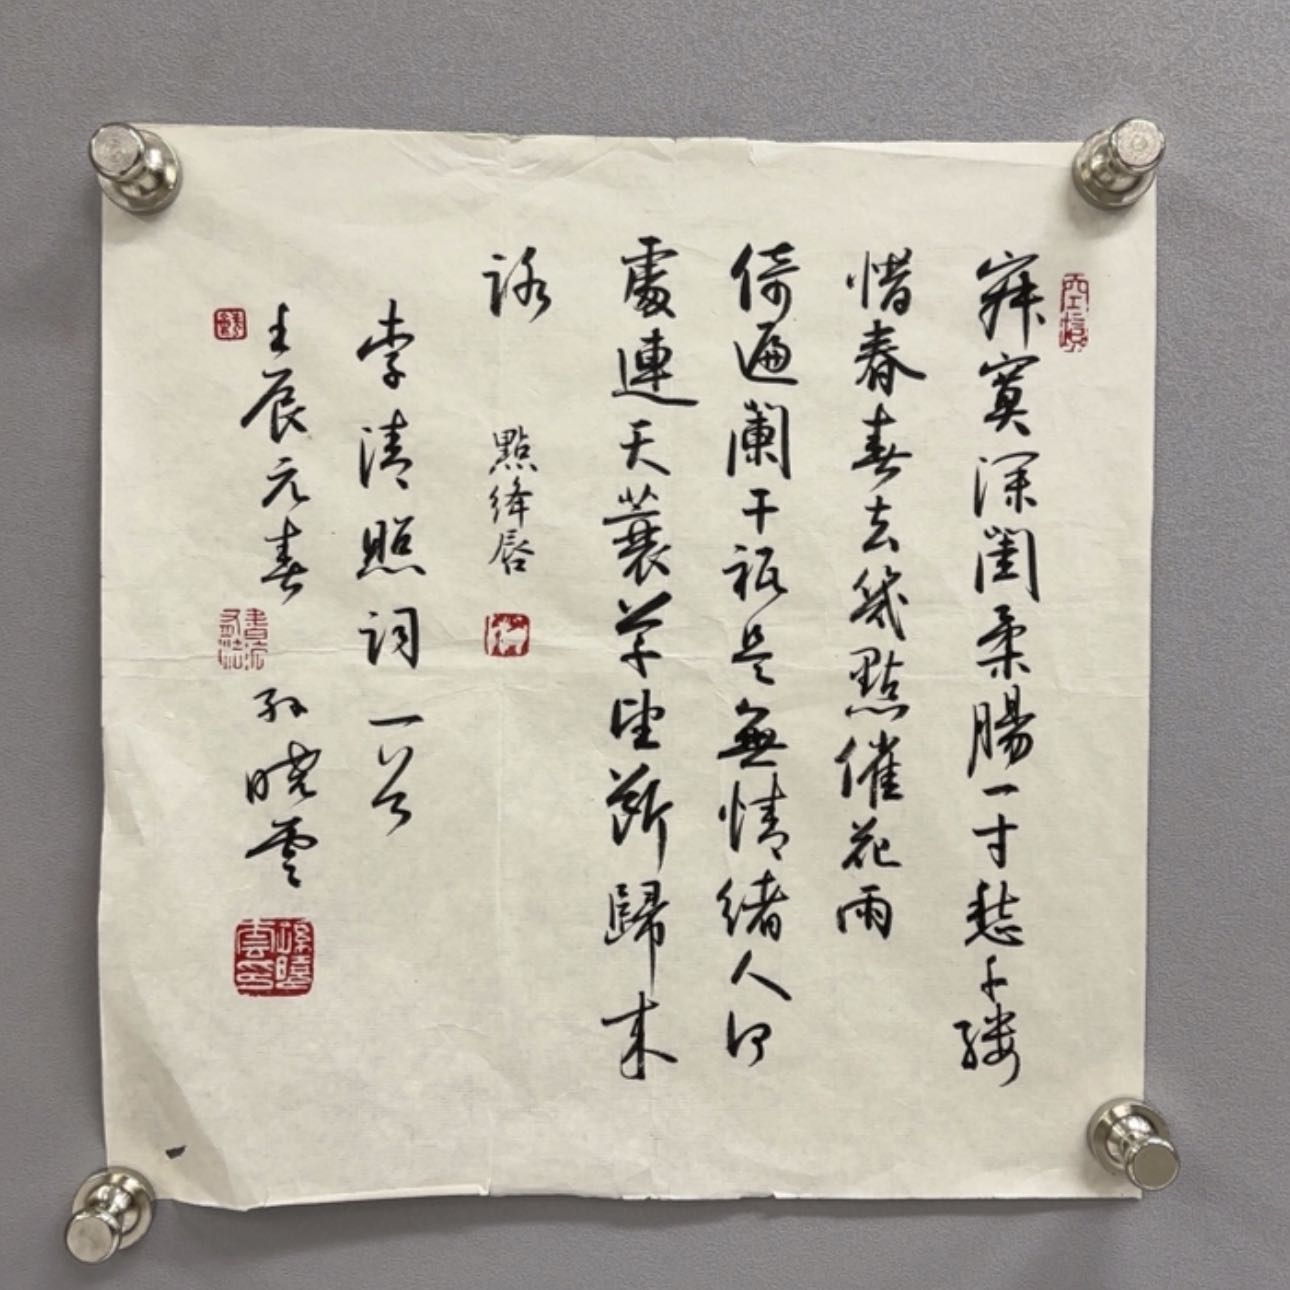 寂寞深閨柔腸一寸愁千縷
惜春春去幾點催花雨
倚遍闌干祇是無情緒人何
處連天衰草望斷歸來
路
點絳唇
李清照詞一首
壬辰元春
孫曉雲
孫曉雲印